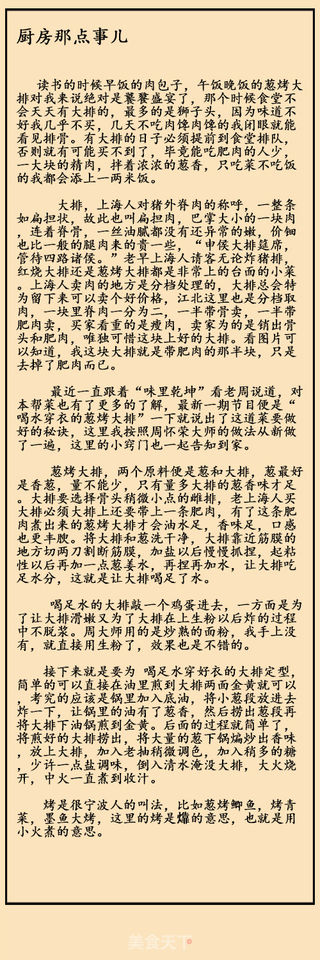 厨房那点事儿
读书的时候早饭的肉包子，午饭晚饭的葱烤大
排对我来说绝对是饕餮盛宴了，那个时候食堂不
会天天有大排的，最多的是狮子头，因为味道不
好我几乎不买，几天不吃肉馋肉馋的我闭眼就能
看见排骨。有大排的日子必须提前到食堂排队，
否则就有可能买不到了，毕竟能吃肥肉的人少，
一大块的精肉，拌着浓浓的葱香，只吃菜不吃饭
的我都会添上一两米饭。
大排，上海人对猪外脊肉的称呼，一整条
如扁担状，故此也叫扁担肉，巴掌大小的一块肉
，连着脊骨，一丝油腻都没有还异常的嫩，价钿
也比一般的腿肉来的贵一些，“申侯大排筵席，
管待四路诸侯。”老早上海人请客无论炸猪排，
红烧大排还是葱烤大排都是非常上的台面的小菜
。上海人卖肉的地方是分档处理的，大排总会特
为留下来可以卖个好价格，江北这里也是分档取
肉，一块里脊肉一分为二，一半带骨卖，一半带
肥肉卖，买家看重的是瘦肉，卖家为的是销出骨
头和肥肉，唯独可惜这块上好的大排。看图片可
以知道，我这块大排就是带肥肉的那半块，只是
去掉了肥肉而已。
最近一直跟着“味里乾坤”看老周说道，对
本帮菜也有了更多的了解，最新一期节目便是“
喝水穿衣的葱烤大排”一下就说出了这道菜要做
好的秘诀，这里我按照周怀荣大师的做法从新做
了一遍，这里的小窍门也一起告知到家。
葱烤大排，两个原料便是葱和大排，葱最好
是香葱，量不能少，只有量多大排的葱香味才足
。大排要选择骨头稍微小点的雌排，老上海人买
大排必须大排上还要带上一条肥肉，有了这条肥
肉煮出来的葱烤大排才会油水足，香味足，口感
也更丰腴。将大排和葱洗干净，大排靠近筋膜的
地方切两刀割断筋膜，加盐以后慢慢抓捏，起粘
性以后再加一点葱姜水，再捏再加水，让大排吃
足水分，这就是让大排喝足了水。
喝足水的大排敲一个鸡蛋进去，一方面是为
了让大排滑嫩又为了大排在上生粉以后炸的过程
中不脱浆。周大师用的是炒熟的面粉，我手上没
有，就直接用生粉了，效果也是不错的。
接下来就是要为 喝足水穿好衣的大排定型，
简单的可以直接在油里煎到大排两面金黄就可以
，考究的应该是锅里加入底油，将小葱段放进去
炸一下，让锅里的油有了葱香，然后捞出葱段再
将大排下油锅煎到金黄。后面的过程就简单了，
将煎好的大排捞出，将大量的葱下锅煸炒出香味
，放上大排，加入老抽稍微调色，加入稍多的糖
，少许一点盐调味，倒入清水淹没大排，大火烧
开，中火一直煮到收汁。
烤是很宁波人的叫法，比如葱烤鲫鱼，烤青
菜，墨鱼大烤，这里的烤是㸆的意思，也就是用
小火煮的意思。
美食天下